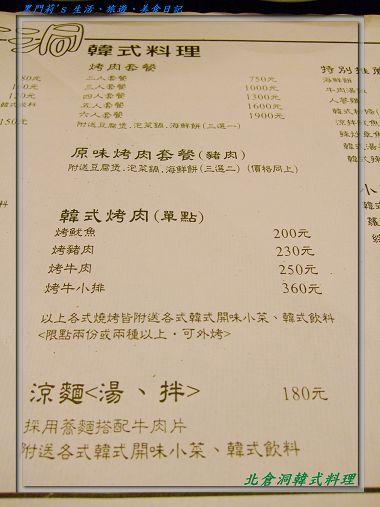 黑門莉's 生活、旅遊、美食日記
洞
韓式料理
烤肉套餐
二人套餐 750元
三人套餐 1000元
四人套餐 1300元
五人套餐 1600元
六人套餐 1900元
附送豆腐煲.泡菜鍋.海鮮餅(三選一)
原味烤肉套餐(豬肉)
附送豆腐煲.泡菜鍋.海鮮餅(三選二) (價格同上)
韓式烤肉(單點)
烤魷魚 200元
烤豬肉 230元
烤牛肉 250元
烤牛小排 360元
以上各式燒烤皆附送各式韓式開味小菜、韓式飲料
<限點兩份或兩種以上,可外烤>
涼麵<湯、拌> 180元
採用蕎麵搭配牛肉片
附送各式韓式開味小菜、韓式飲料
特別推薦
海鮮餅
牛肉湯飯
人蔘雞
小
北倉洞韓式料理